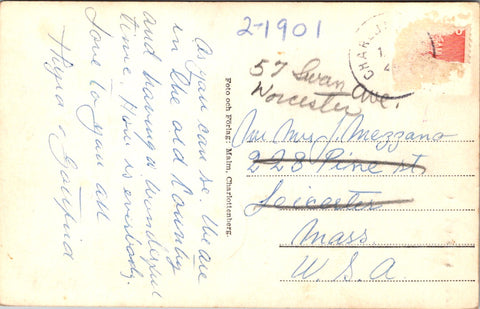 2-1901
As you can se. We are
in the old Country
and having a wonderful
time. How is everybody.
Love to you all
&
Foto och Förlag: Malm, Charlottenberg.
CHARL
57 Swan Ave.
Worcester
Mr Mrs J. Mezzano
228 Pine st
Leicester
Mass
U.S.A.